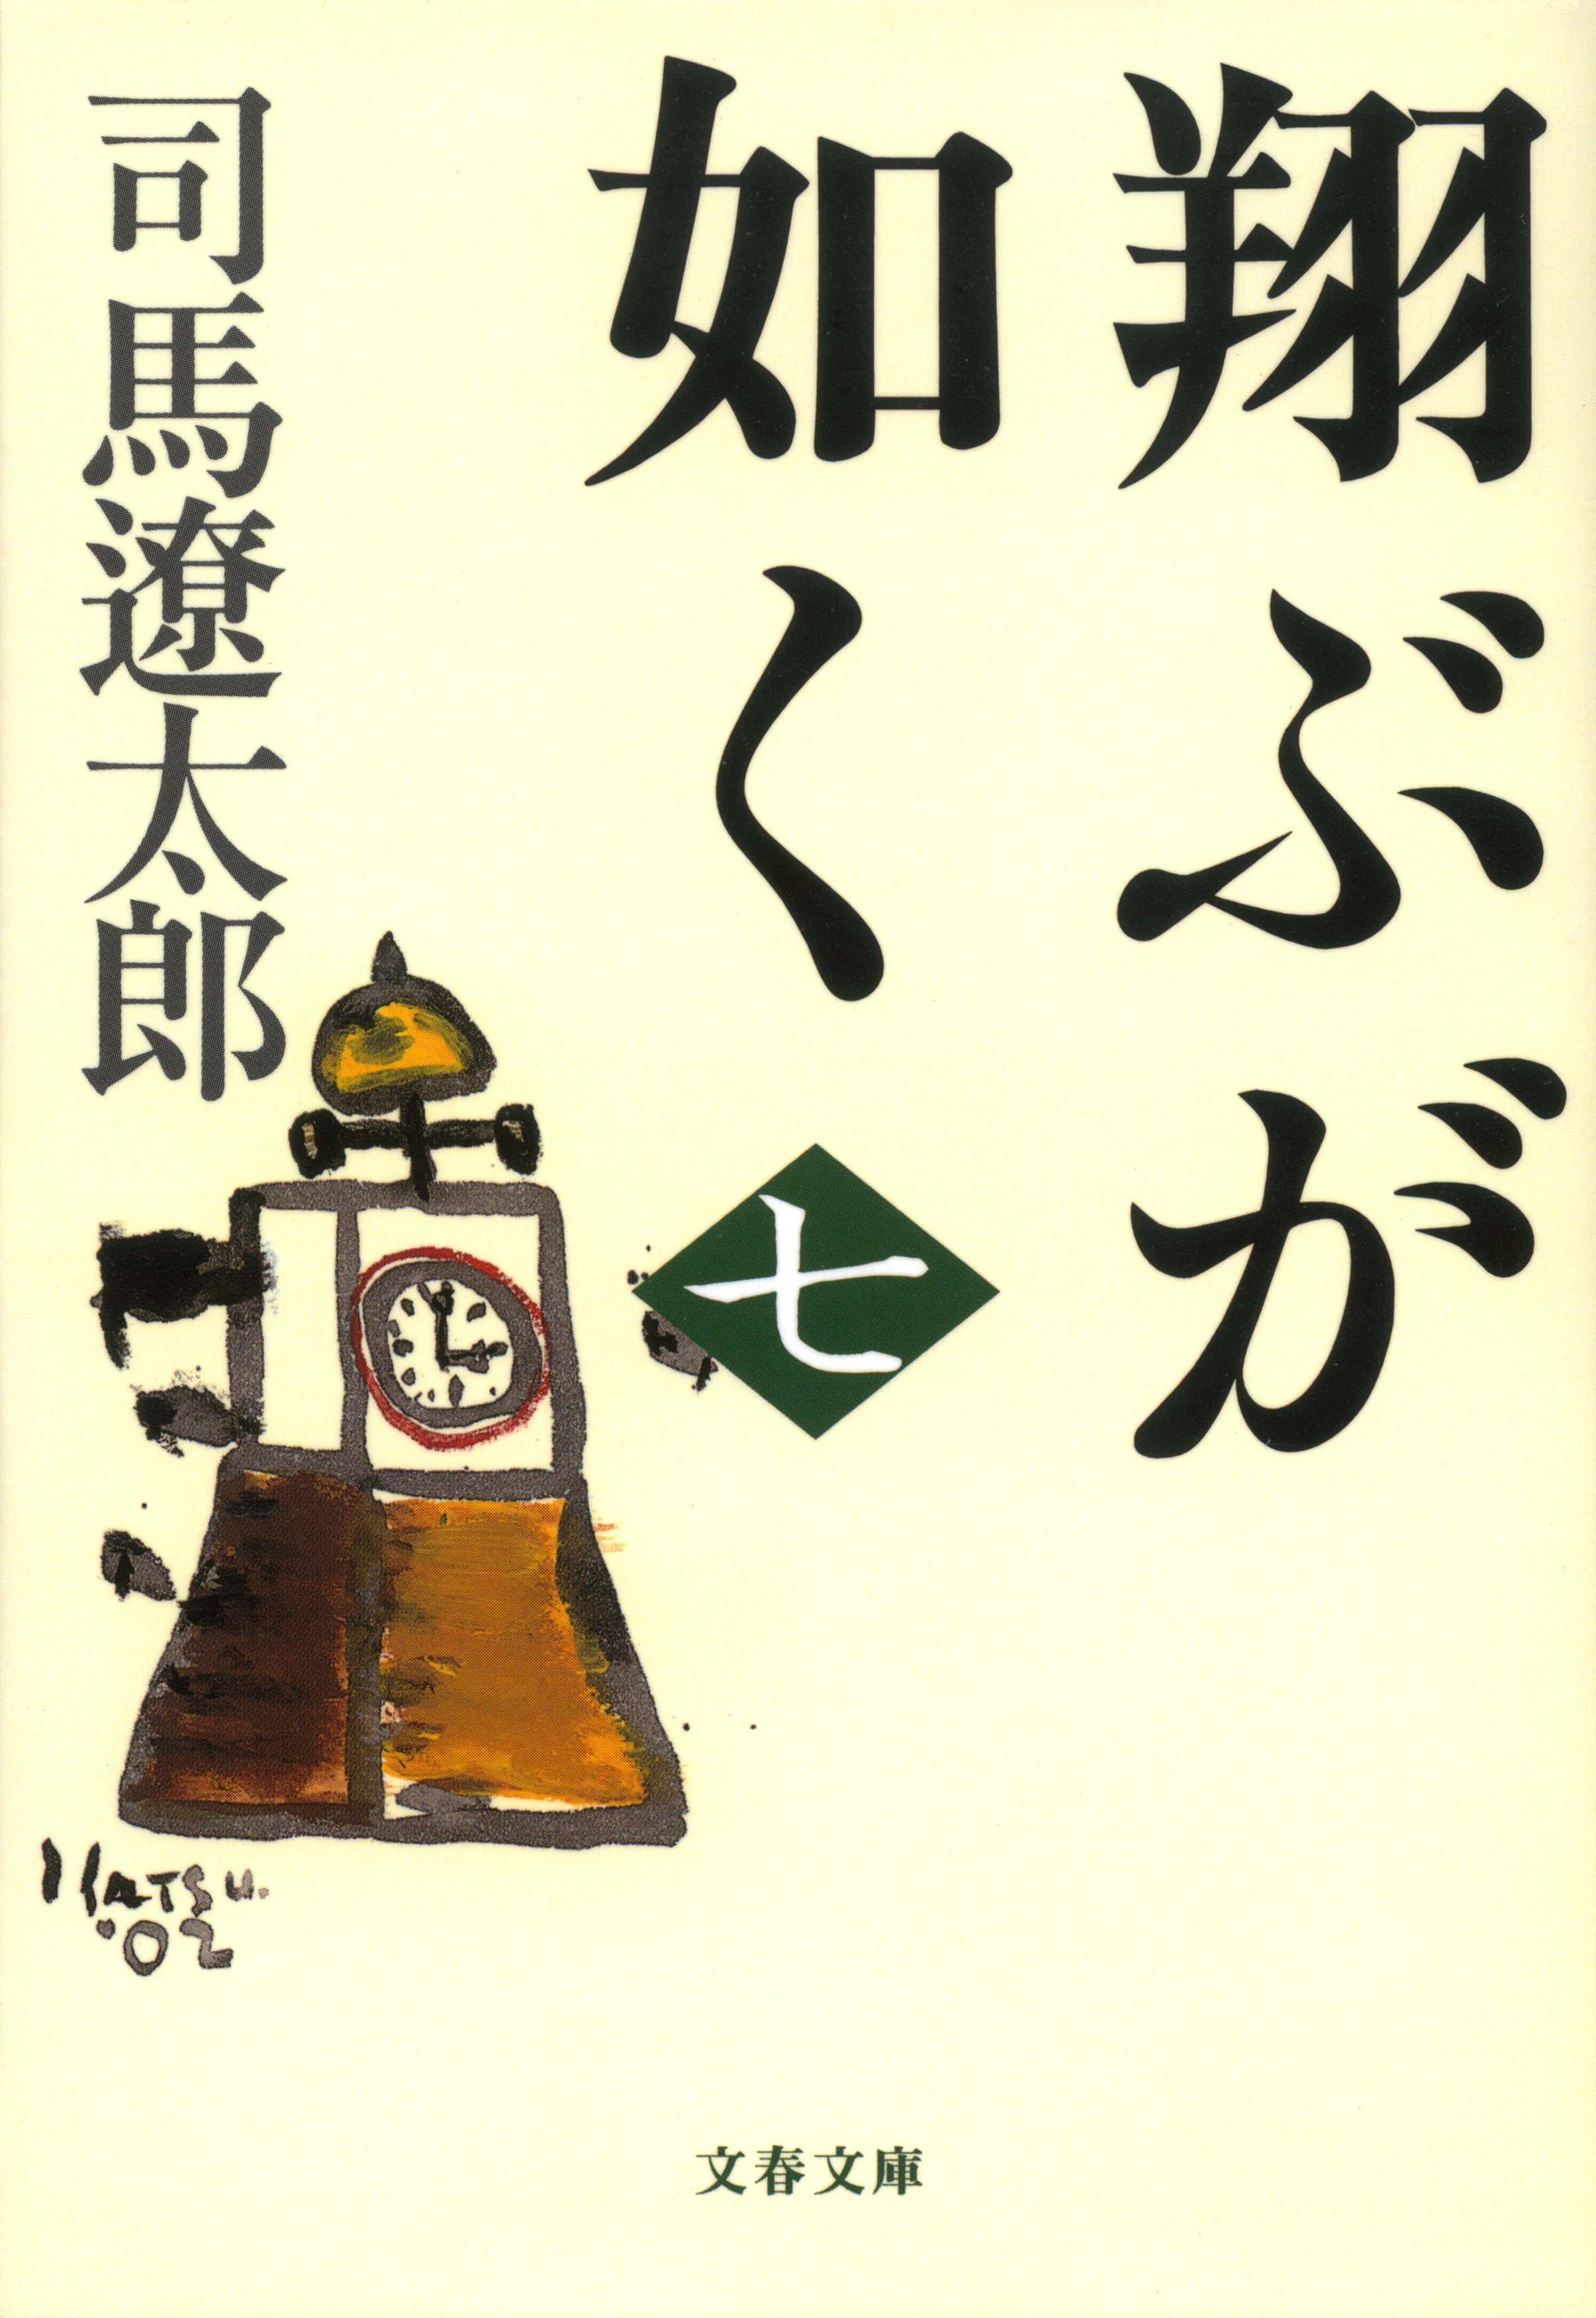 翔ぶが
如く
七
司馬遼太郎
KATSU.
'02
文春文庫